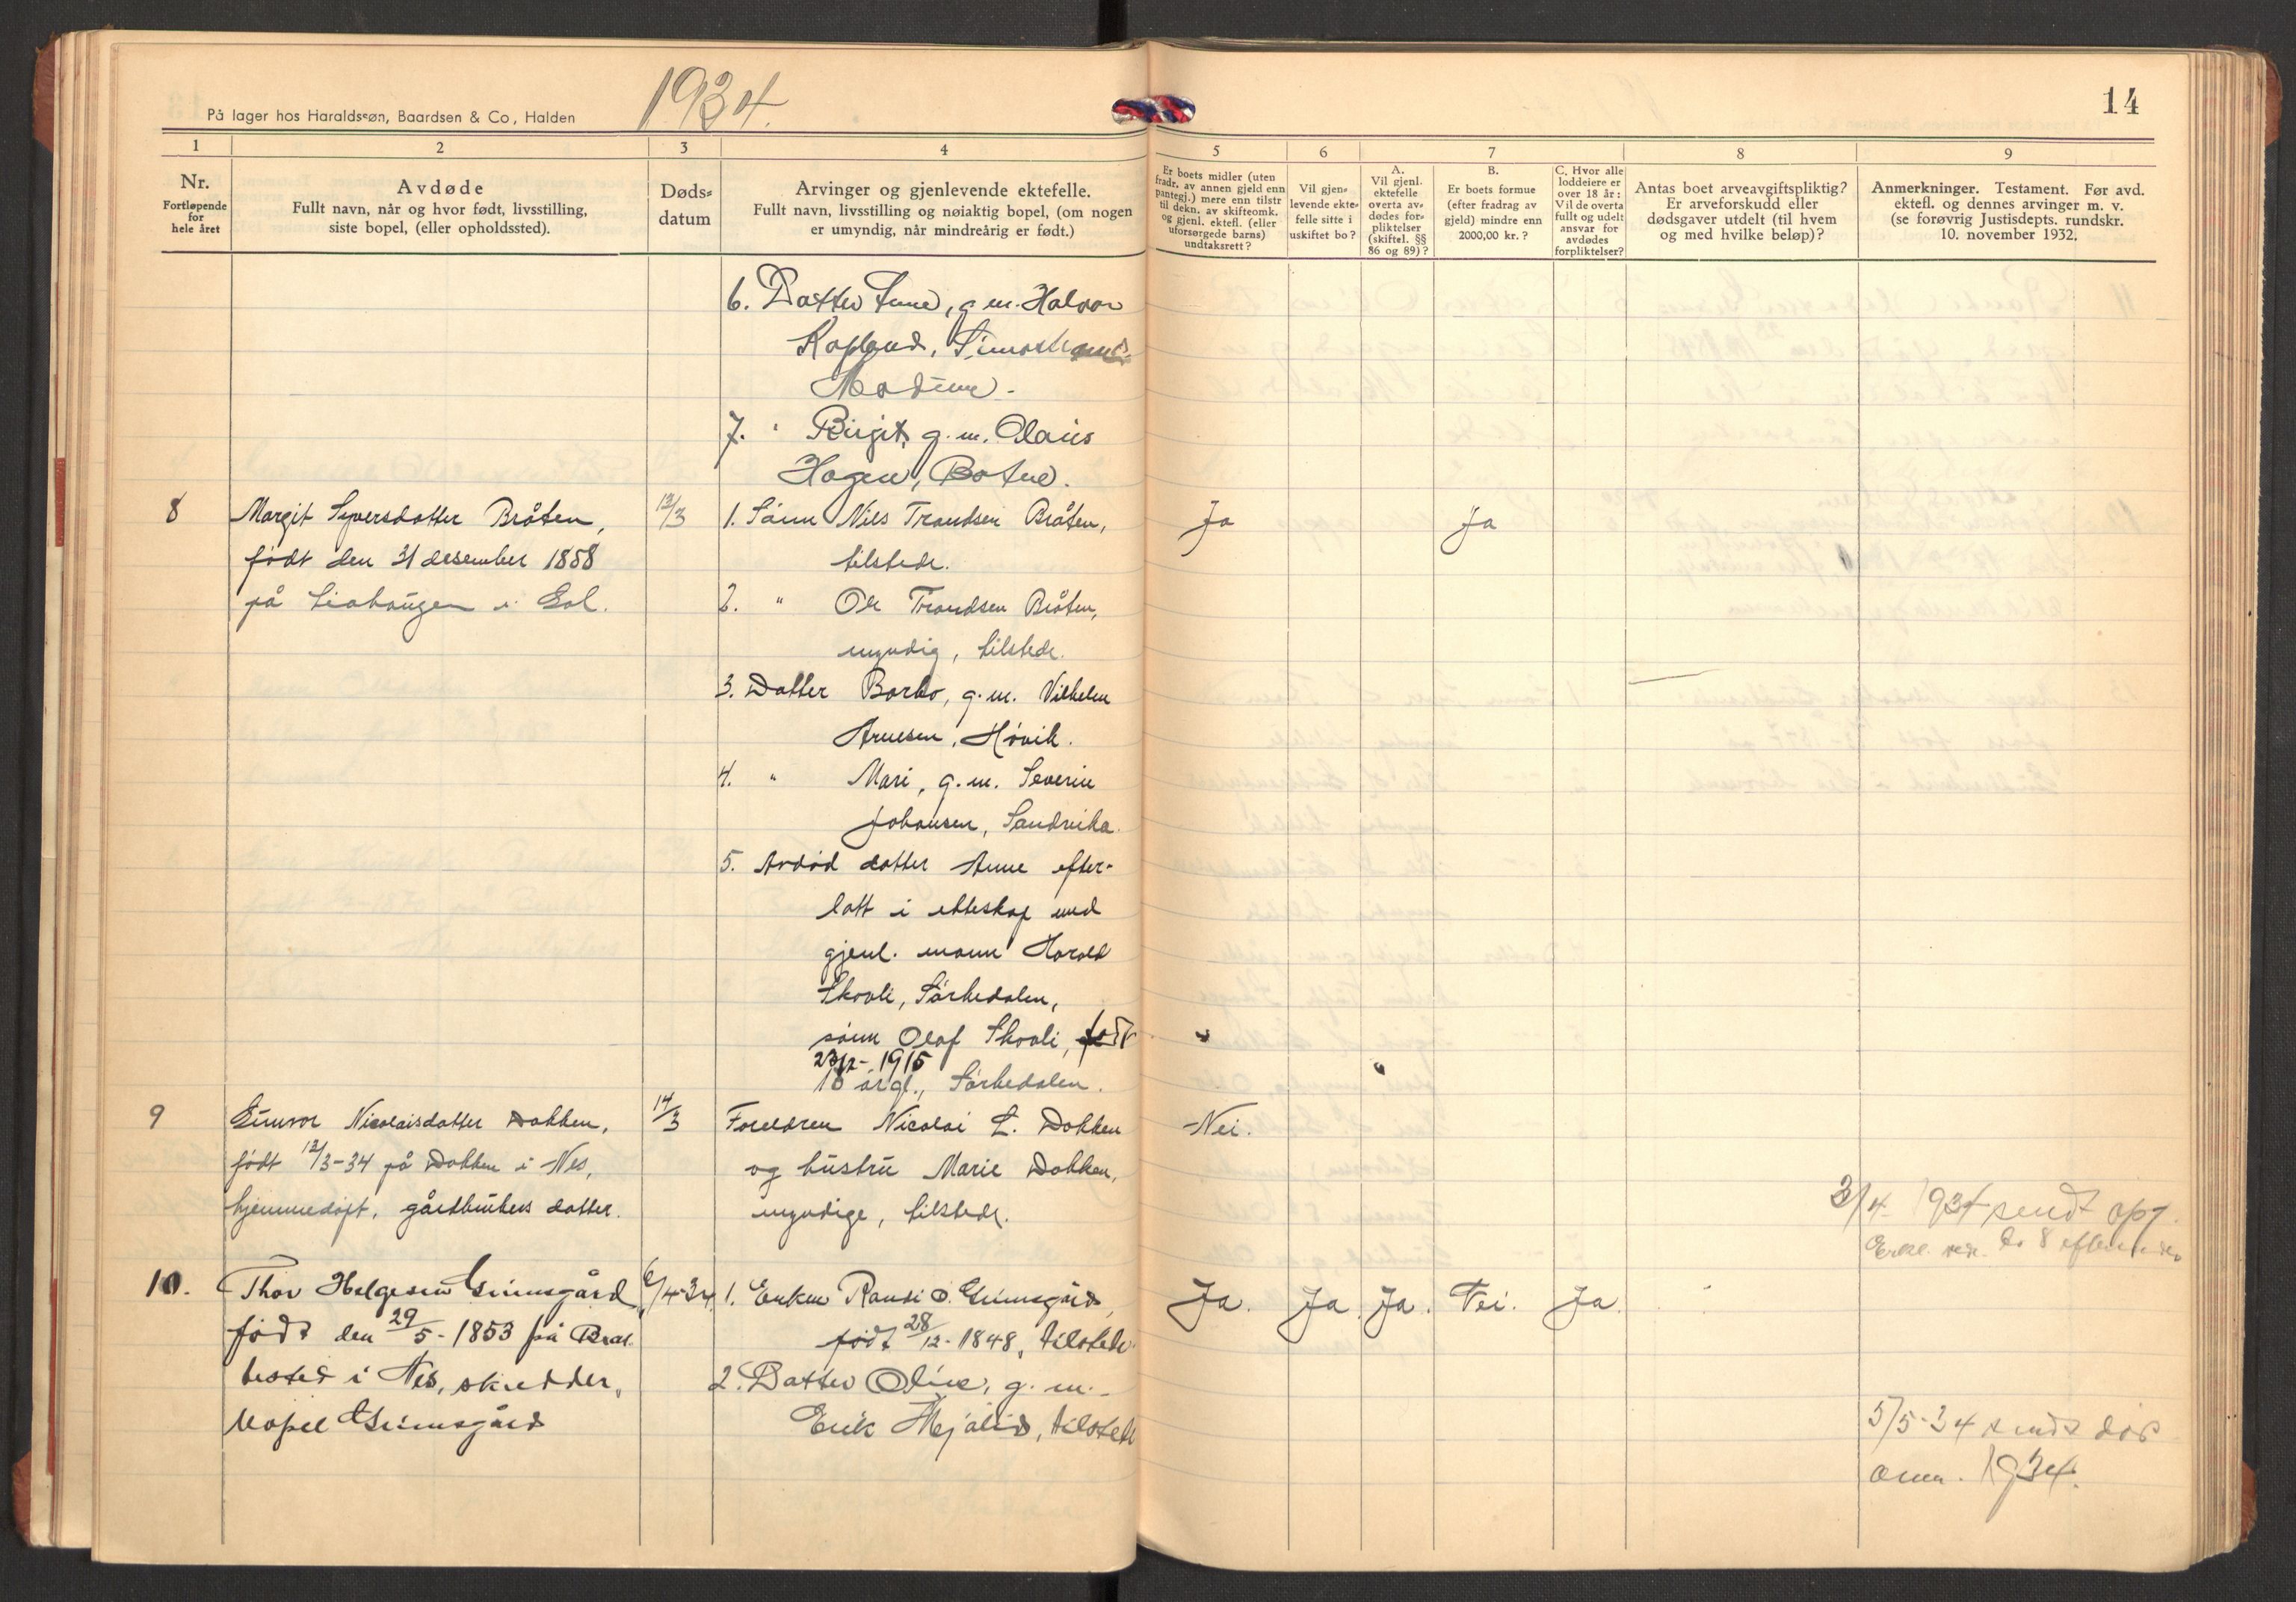 På lager hos Haraldssøn, Baardsen & Co, Halden
1934.
14
1
2
3
4
5
6
7
8
9
Nr.
Fortløpende
for
hele året
Avdøde
Fullt navn, når og hvor født, livsstilling,
siste bopel, (eller opholdssted).
Døds=
datum
Arvinger og gjenlevende ektefelle.
Fullt navn, livsstilling og nøiaktig bopel, (om nogen
er umyndig, når mindreårig er født.)
Er boets midler (uten
fradr. av annen gjeld enn
pantegj.) mere enn tilstr
til dekn. av skifteomk.
og gjenl. ektefl. (eller
uforsørgede barns)
undtaksrett?
Vil gjen=
levende ekte=
felle sitte i
uskiftet bo?
A.
Vil gjenl.
ektefelle
overta av=
dødes for=
pliktelser
(skiftel. §§
86 og 89)?
B.
Er boets formue
(efter fradrag av
gjeld) mindre enn
2000,00 kr.?
C. Hvor alle
loddeiere er
over 18 år:
Vil de overta
fullt og udelt
ansvar for
avdødes
forpliktelser?
Antas boet arveavgiftspliktig?
Er arveforskudd eller
dødsgaver utdelt (til hvem
og med hvilke beløp)?
Anmerkninger. Testament. Før avd.
ektefl. og dennes arvinger m. v.
(se forøvrig Justisdepts. rundskr.
10. november 1932.
6. Datter , g. m. Halvor
Modum.
7. " Birgit, g. m. Olaus
Hagen, Botne.
8 Margit Syversdatter Bråten, 12/3 1. Sönn Nils Trondsen Bråten, Ja Ja
født den 31 desember 1858 tilstede.
på Liahaugen i Gol. 2. " Ole Trondsen Bråten,
myndig, tilstede.
3. Datter Barbo, g. m. Vilhelm
Arnesen, Høvik.
4. " Mari, g. m. Severin
Johansen, Sandvika.
5. Avdød datter Anne efter-
latt i ekteskap med
gjenl. mann Harald
Skoali, Sørkedalen,
sønn Olaf Skoali, født
23/12-1915
18 årgl., Sørkedalen.
9 Gunvor Nicolaisdatter Dokken, 14/3 Foreldren Nicolai L. Dokken Nei.
født 12/3-34 på Dokken i Nes, og hustru Marie Dokken,
hjemmedøpt, gårdbrukers datter. myndige, tilstede.
3/4 1934 sendt opg.
10. Thor Helgesen Grimsgård 6/4-34 1. Enken Randi O. Grimsgård, Ja. Ja Ja. Nei. Ja.
født den 29/5-1853 på Brat- født 28/12-1848, tilstede
tested i Nes, skredder, 2. Datter Oline, g. m.
bopel Grimsgård Erik Mjålid, tilstede
5/5-34 sendt
1934.